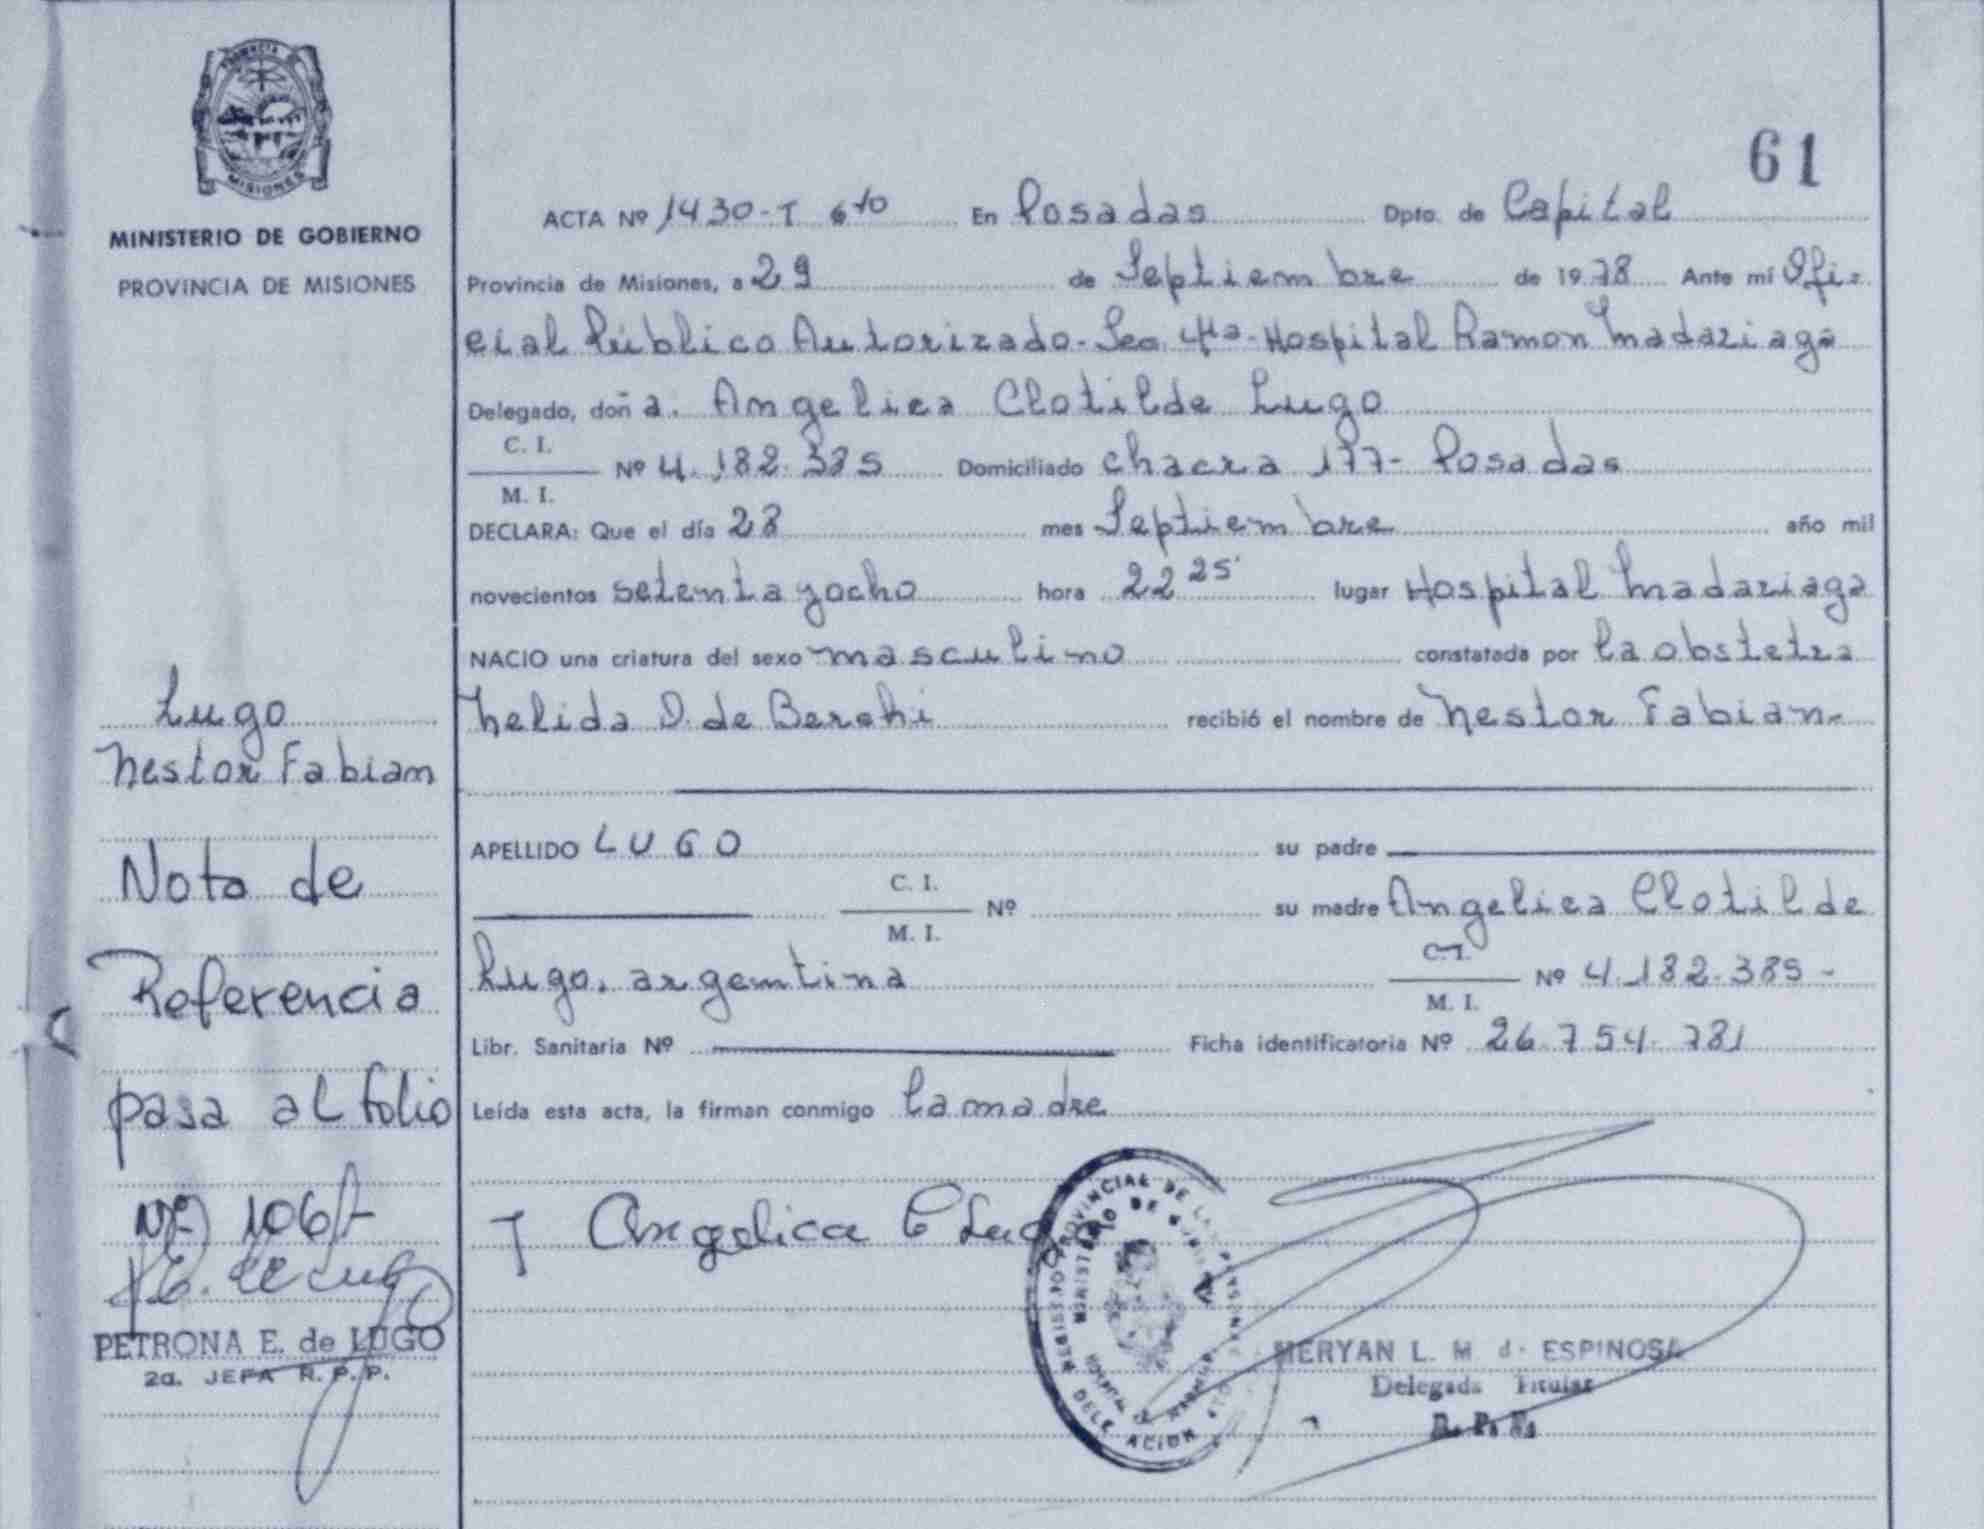 PROVINCIA DE
MISIONES
MINISTERIO DE GOBIERNO
PROVINCIA DE MISIONES
61
ACTA Nº 1430-T 6to En Posadas Dpto. de Capital
Provincia de Misiones, a 29 de Septiembre de 1978 Ante mí Ofi-
cial Público Autorizado-Sec. 4ta-Hospital Ramon Madariaga
Delegado, doña. Angelica Clotilde Lugo
C. I.
Nº 4.182.385 Domiciliado chacra 177- Posadas
M. I.
DECLARA: Que el día 28 mes Septiembre año mil
novecientos setenta y ocho hora 22 25' lugar Hospital Madariaga
NACIO una criatura del sexo masculino constatada por la obstetra
Nelida D. de Berchi recibió el nombre de Nestor Fabian-
APELLIDO LUGO su padre
C. I.
Nº su madre Angelica Clotilde
M. I.
Lugo, argentina C.I. Nº 4.182.385-
M. I.
Libr. Sanitaria Nº Ficha identificatoria Nº 26.754.781
Leída esta acta, la firman conmigo la madre
Angelica C Lugo
REGISTRO PROVINCIAL DE LAS PERSONAS
MINISTERIO DE
DELEGACION
MERYAN L. M. d. ESPINOSA
Delegada Titular
R. P. P.
Lugo
Nestor Fabian
Nota de
Referencia
pasa al folio
Nº 106
PETRONA E. de LUGO
2a. JEFA R. P. P.